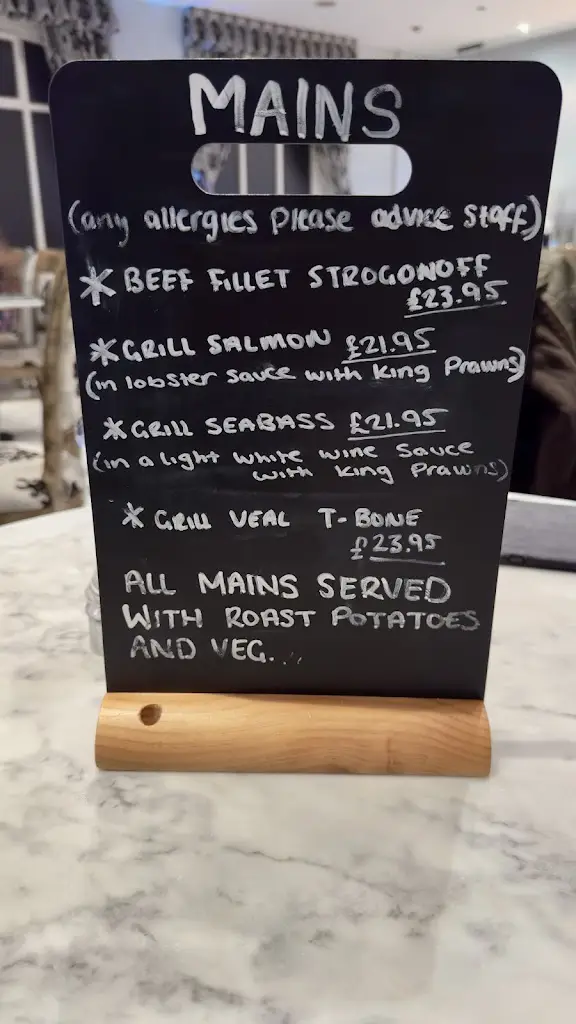 MAINS
(any allergies Please advice Staff)
* BEEF FILLET STROGONOFF
£23.95
* GRILL SALMON £21.95
(in lobster sauce with King Prawns)
* GRILL SEABASS £21.95
(in a light white wine Sauce
with King Prawns)
* GRILL VEAL T-BONE
£23.95
ALL MAINS SERVED
WITH ROAST POTATOES
AND VEG...